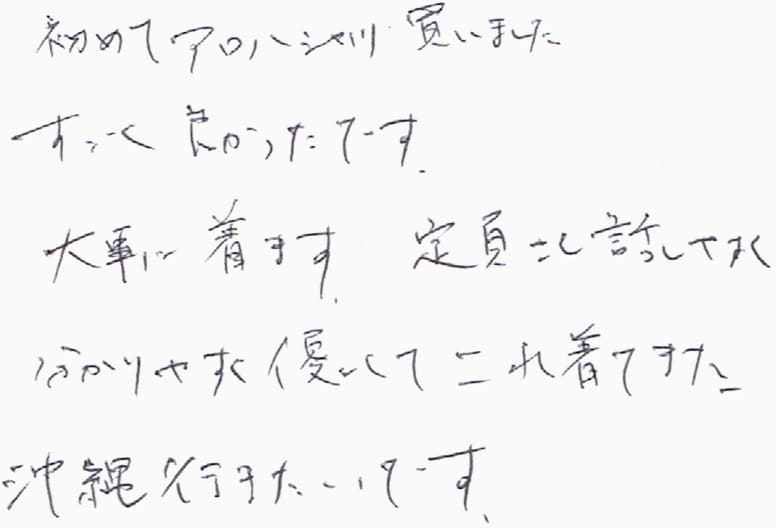 初めてアロハシャツ買いました
すごく良かったです.
大事に着ます. 定員さん話しやすく
分かりやすく優しくてこれ着てまた
沖縄行きたいです.